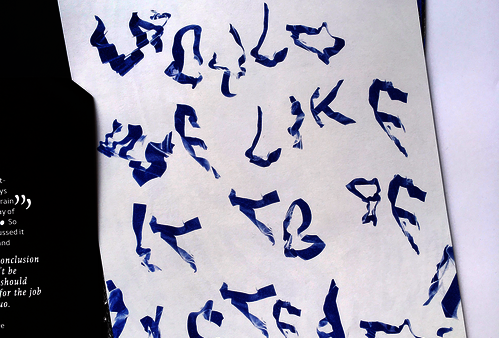 WOULD
WE LIKE
IT TO BE
INSTEAD
rain”
ay of
So
ussed it
and
onclusion
't be
should
for the job
uo.